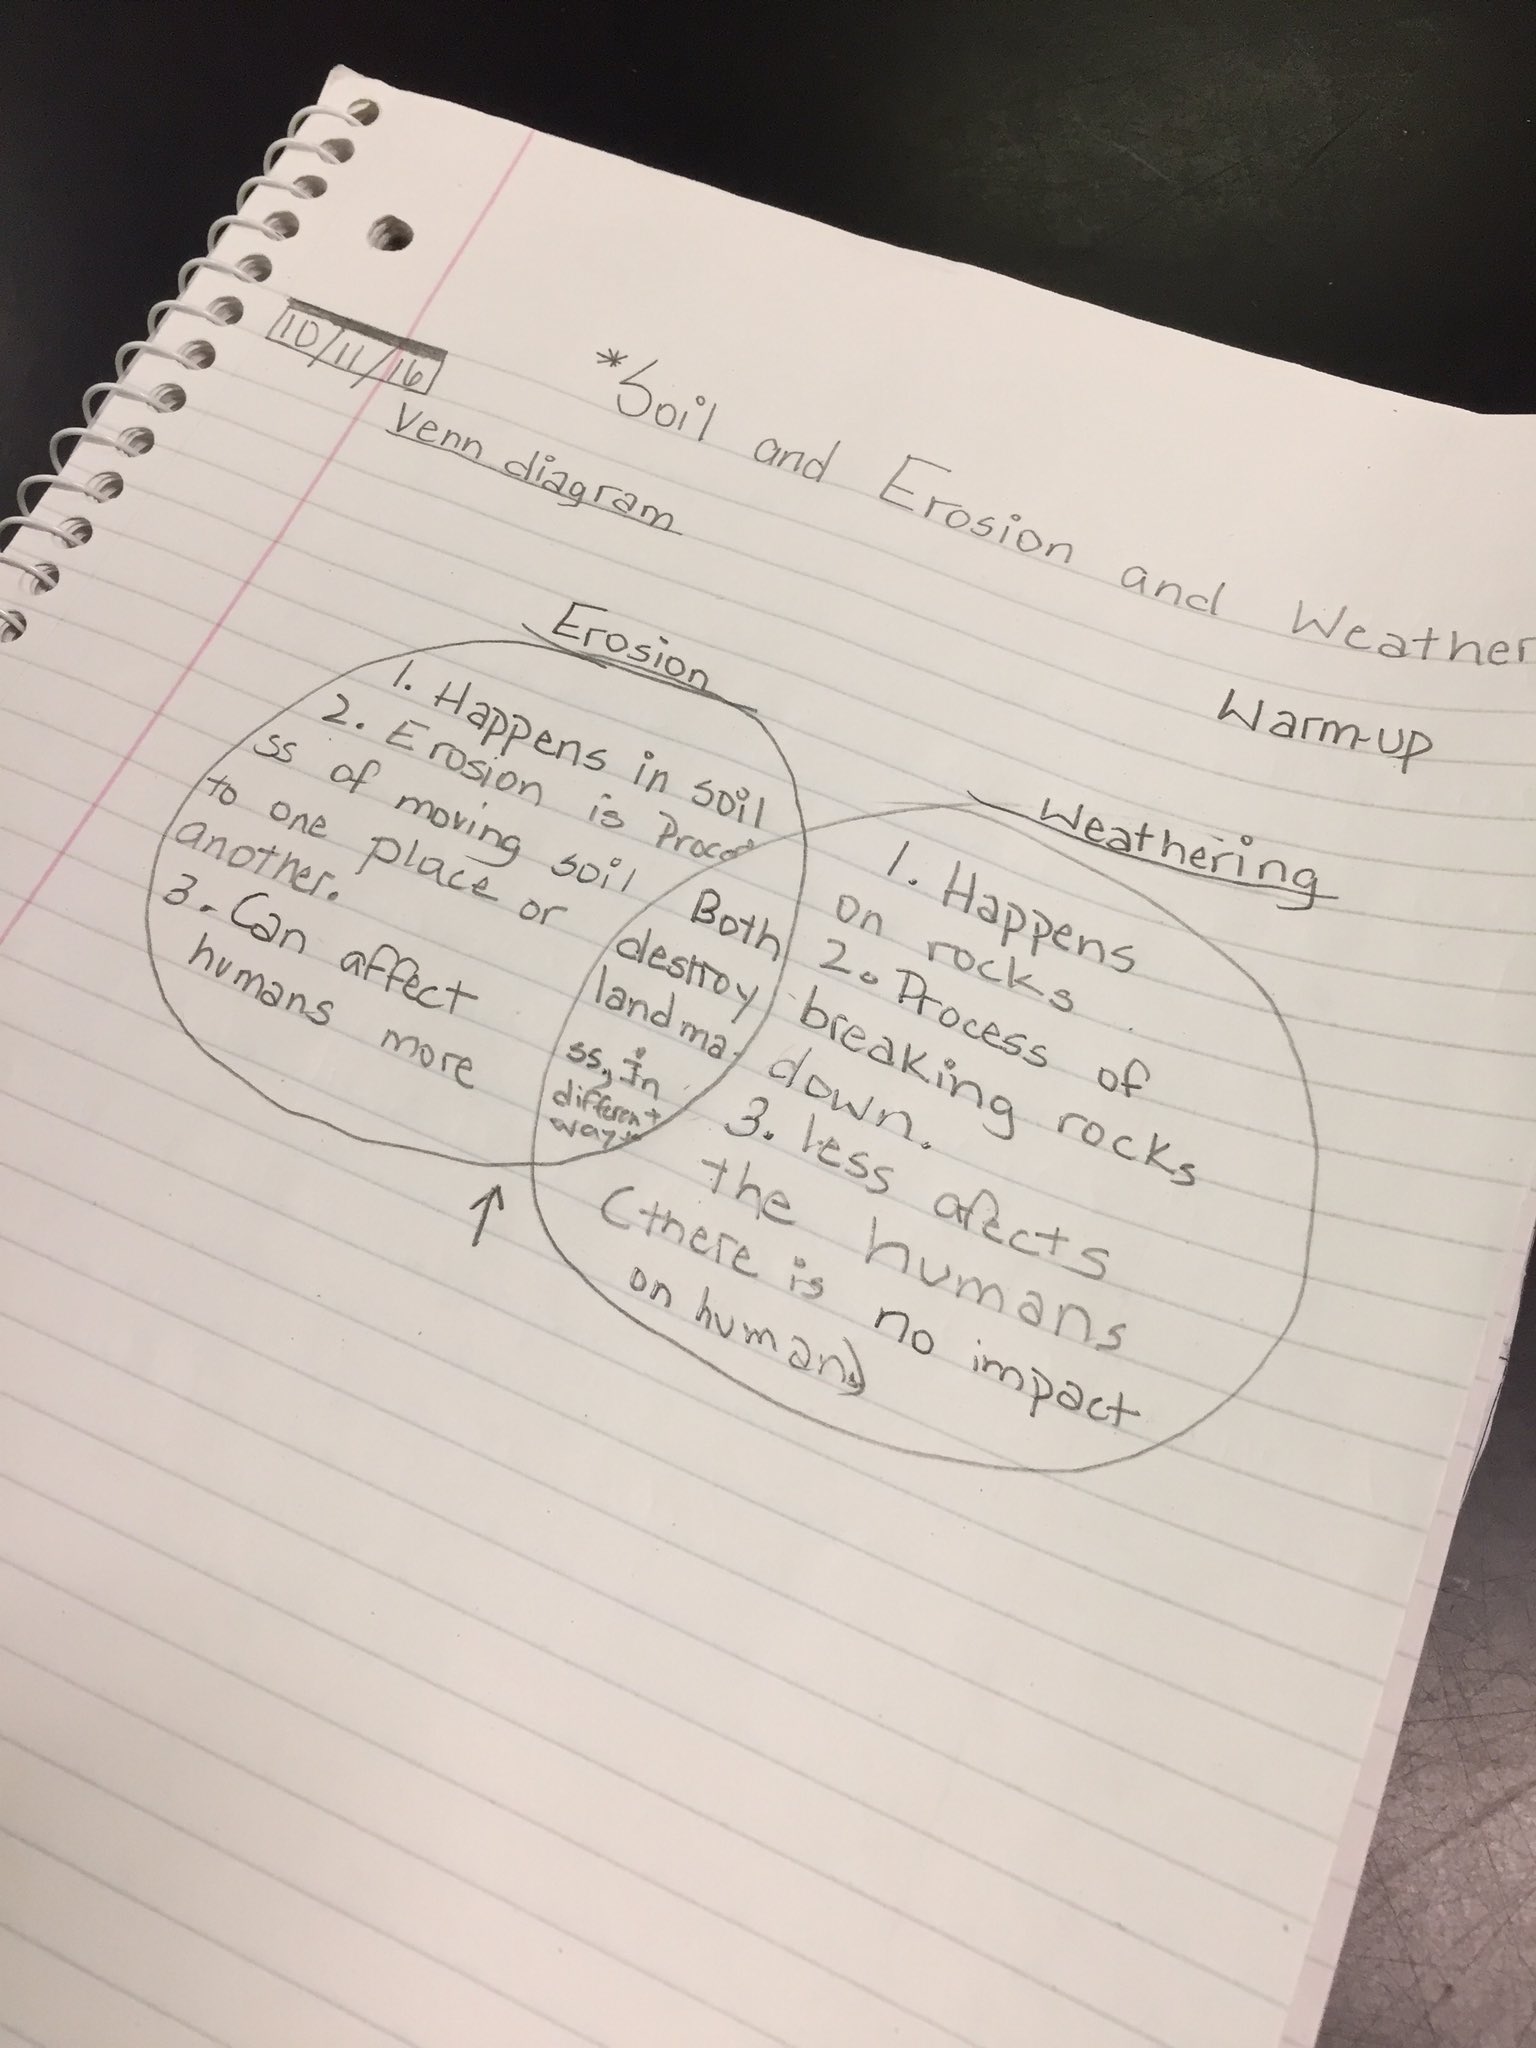 10/11/16
*Soil and Erosion and Weather
Venn diagram
Warm-up
Erosion
1. Happens in soil
2. Erosion is Proce
ss of moving soil
to one place or
another.
3. Can affect
humans more
Both
destroy
landma
ss, in
different
way
Weathering
1. Happens
on rocks
2. Process of
breaking rocks
down.
3. less afects
the humans
(there is no impact
on human.)